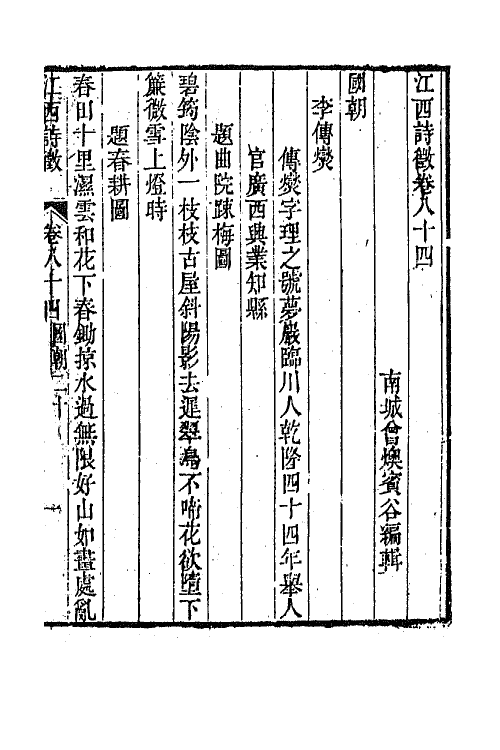 江西詩徵卷八十四
南城曾燠賓谷編輯
國朝
李傳爕
傳爕字理之號夢巖臨川人乾隆四十四年舉人
官廣西興業知縣
題曲院疎梅圖
碧筠陰外一枝枝古屋斜陽影去遲翠鳥不啼花欲墮下
簾微雪上燈時
題春耕圖
春田十里濕雲和花下春鋤掠水過無限好山如畫處亂
江西詩徵
卷八十四
國朝二十